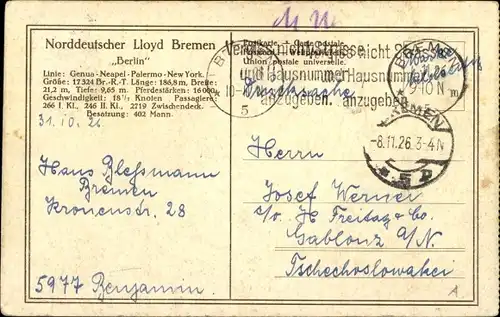 Norddeutscher Lloyd Bremen
„Berlin"
Linie: Genua - Neapel - Palermo - New York. —
Größe: 17324 Br.-R.-T. Länge: 186,8 m, Breite:
21,2 m, Tiefe: 9,65 m. Pferdestärken: 16000,
Geschwindigkeit: 18½ Knoten Passagiere:
266 I. Kl., 246 II. Kl., 2719 Zwischendeck.
Besatzung: 402 Mann.
31.10.26
Hans Blessmann
Bremen
Kronenstr. 28
5977 Benjamin
Postkarte - Carte postale
Union postale universelle.
Vergiss nicht Strasse
und Hausnummer
anzugeben.
nicht Strasse
Hausnummer
anzugeben
Drucksache
5
BREMEN
9-10 N
m
BREMEN
-8.11.26.3-4N
Herrn
Josef Werner
c/o H Freitag & Co.
Gablonz a/N.
Tschechoslowakei
A.